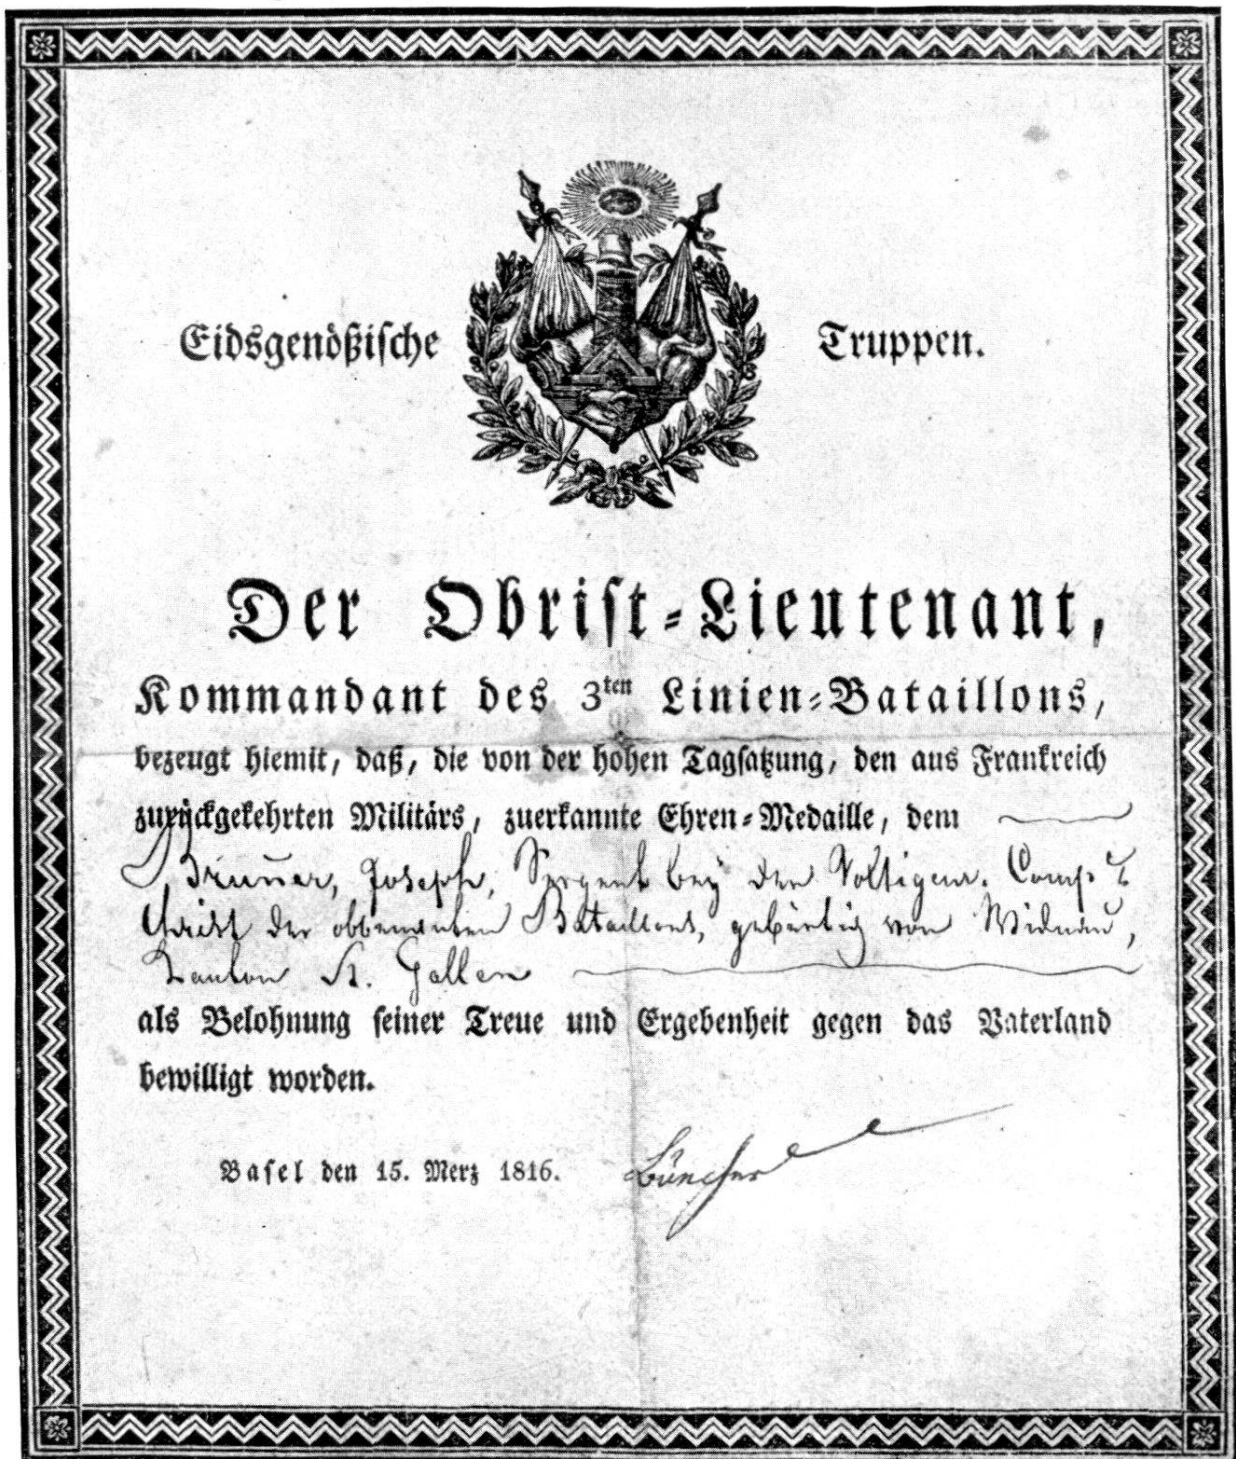 Eidsgenößische Truppen.
Der Obrist-Lieutenant,
Kommandant des 3ten Linien-Bataillons,
bezeugt hiemit, daß, die von der hohen Tagsatzung, den aus Frankreich
zurückgekehrten Militärs, zuerkannte Ehren-Medaille, dem
Joseph, Sergent bey der Voltigeur. Comp.
Bataillons, gebürtig von Widnau,
Kanton St. Gallen
als Belohnung seiner Treue und Ergebenheit gegen das Vaterland
bewilligt worden.
Basel den 15. Merz 1816.